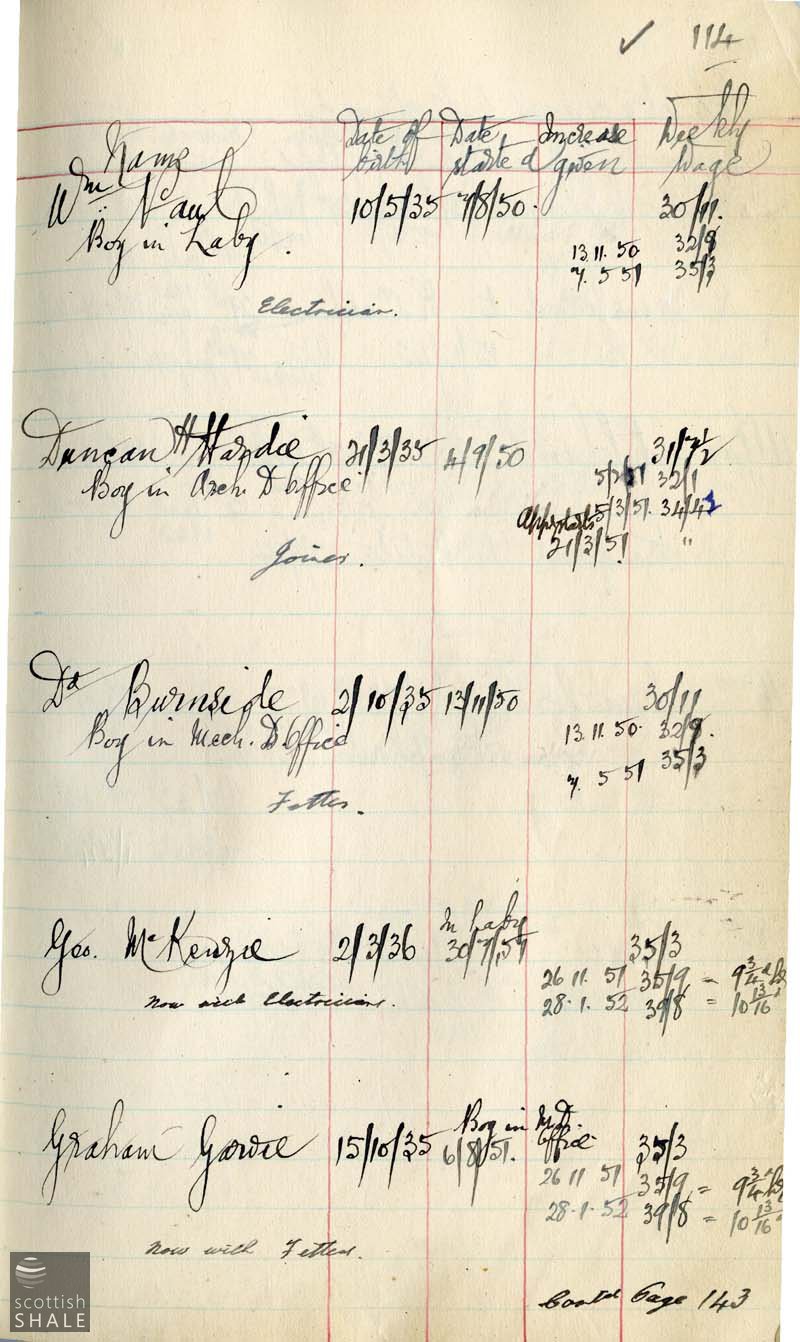 ✓ 114
Name Date of birth Date started Increase given Weekly Wage
Wm Paul 10/5/35 7/8/50. 30/11.
Boy in Laby. 13.11.50 32/9
7.5.51 35/3
Electrician.
Duncan H Hardie 21/3/35 4/9/50 31/7½
Boy in Arch. D Office 5/2/51 32/1
5/3/51. 34/4½
21/3/51 "
Joiner.
Dd Burnside 2/10/35 13/11/50 30/11
Boy in Mech. D Office 13.11.50. 32/9.
7.5.51 35/3
Fitter.
In Laby
Geo. McKenzie 2/3/36 30/7/51 35/3
26.11.51 35/9 = 9¾d
Now with Electricians. 28.1.52 39/8 = 10 13/16
Boy in M.D. Office
Graham Gowdie 15/10/35 6/8/51. 35/3
26 11 51 35/9 = 9¾d
28.1.52 39/8 = 10 13/16
Now with Fitters.
Contd Page 143
scottish
SHALE